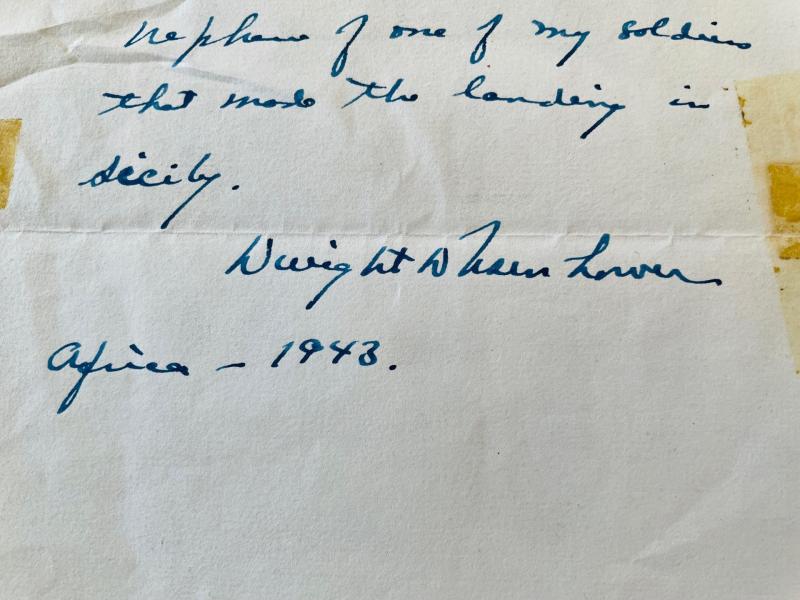 nephew of one of my soldiers
that made the landing in
Sicily.
Dwight D Eisenhower
Africa – 1943.